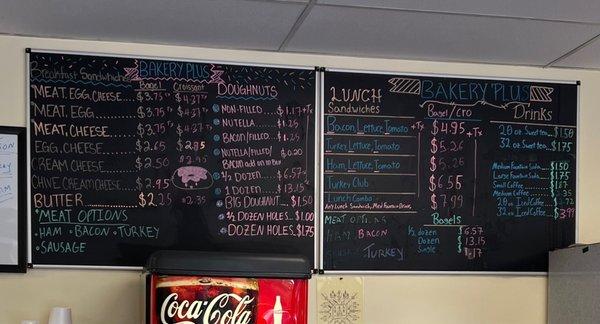 Breakfast Sandwiches BAKERY PLUS
Bagel Croissant
MEAT, EGG, CHEESE $3.75 $4.37
MEAT, EGG $3.75 $4.37
MEAT, CHEESE $3.75 $4.37
EGG, CHEESE $2.65
CREAM CHEESE $2.50
CHIVE CREAM CHEESE $2.95
BUTTER $2.25 $2.35
*MEAT OPTIONS
*HAM *BACON *TURKEY
*SAUSAGE
DOUGHNUTS
NON-FILLED $1.17 +Tx
NUTELLA $1.25
BACON/FILLED $1.25
NUTELLA/FILLED $0.20
BACON ADD IN
½ DOZEN $6.57
1 DOZEN $13.15
BIG DOUGHNUT $1.50
½ DOZEN HOLES $1.00
DOZEN HOLES $1.75
LUNCH BAKERY PLUS
Sandwiches Bagel/Cro
Bacon, Lettuce, Tomato +Tx $4.95 +Tx
Turkey, Lettuce, Tomato $5.26
Ham, Lettuce, Tomato $5.26
Turkey Club $6.55
Lunch Combo $7.99
Any Lunch Sandwich, Med Fountain Drink
MEAT OPTIONS
HAM BACON
TURKEY
Bagels
½ dozen $6.57
Dozen $13.15
Single $1.17
DRINKS
20 oz Sweet tea $1.50
32 oz Sweet tea $1.75
Medium Fountain Soda $1.50
Large Fountain Soda $1.75
Small Coffee
Medium Coffee
20 oz Iced Coffee
32 oz Iced Coffee $3.99
Coca-Cola